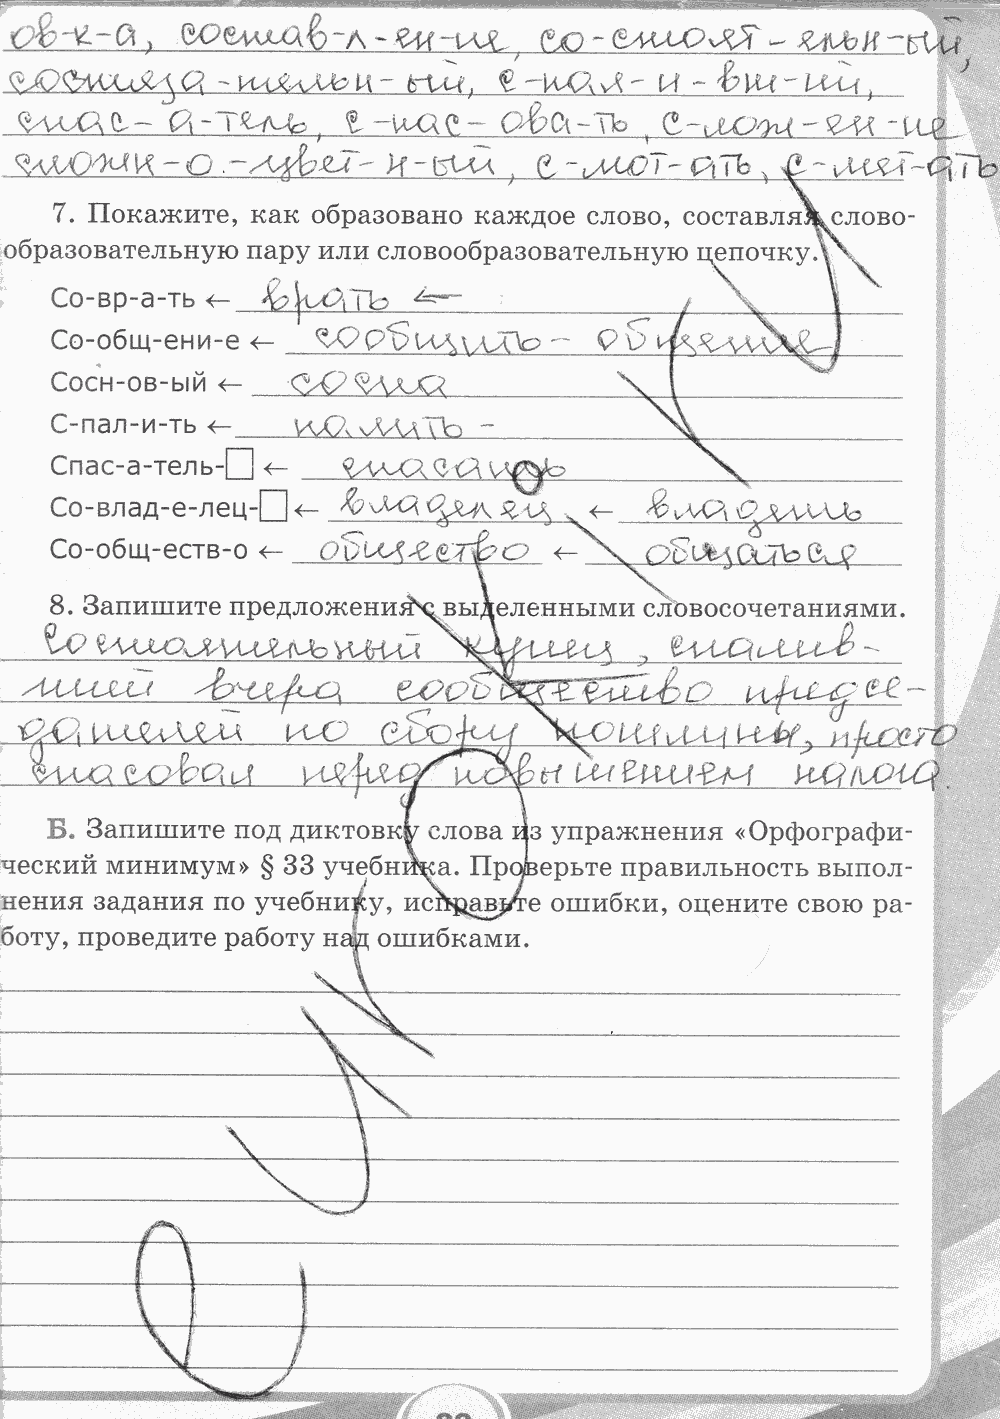 ов-к-а, состав-л-ен-ие, со-стоят-ельн-ый,
состяза-тельн-ый, с-пал-и-вш-ий,
спас-а-тель, с-пас-ова-ть, с-лож-ен-ие
сложн-о-цвет-н-ый, с-мот-ать, с-мет-ать
7. Покажите, как образовано каждое слово, составляя слово-
образовательную пару или словообразовательную цепочку.
Со-вр-а-ть ← врать ←
Со-общ-ени-е ← сообщить - общение
Сосн-ов-ый ← сосна
С-пал-и-ть ← палить -
Спас-а-тель-□ ← спасать
Со-влад-е-лец-□ ← владелец ← владеть
Со-общ-еств-о ← общество ← общаться
8. Запишите предложения с выделенными словосочетаниями.
Состоятельный купец, спалив-
ший вчера сообщество предсе-
дателей по сбору пошлины, просто
спасовал перед повышением налога.
Б. Запишите под диктовку слова из упражнения «Орфографи-
ческий минимум» § 33 учебника. Проверьте правильность выпол-
нения задания по учебнику, исправьте ошибки, оцените свою ра-
боту, проведите работу над ошибками.